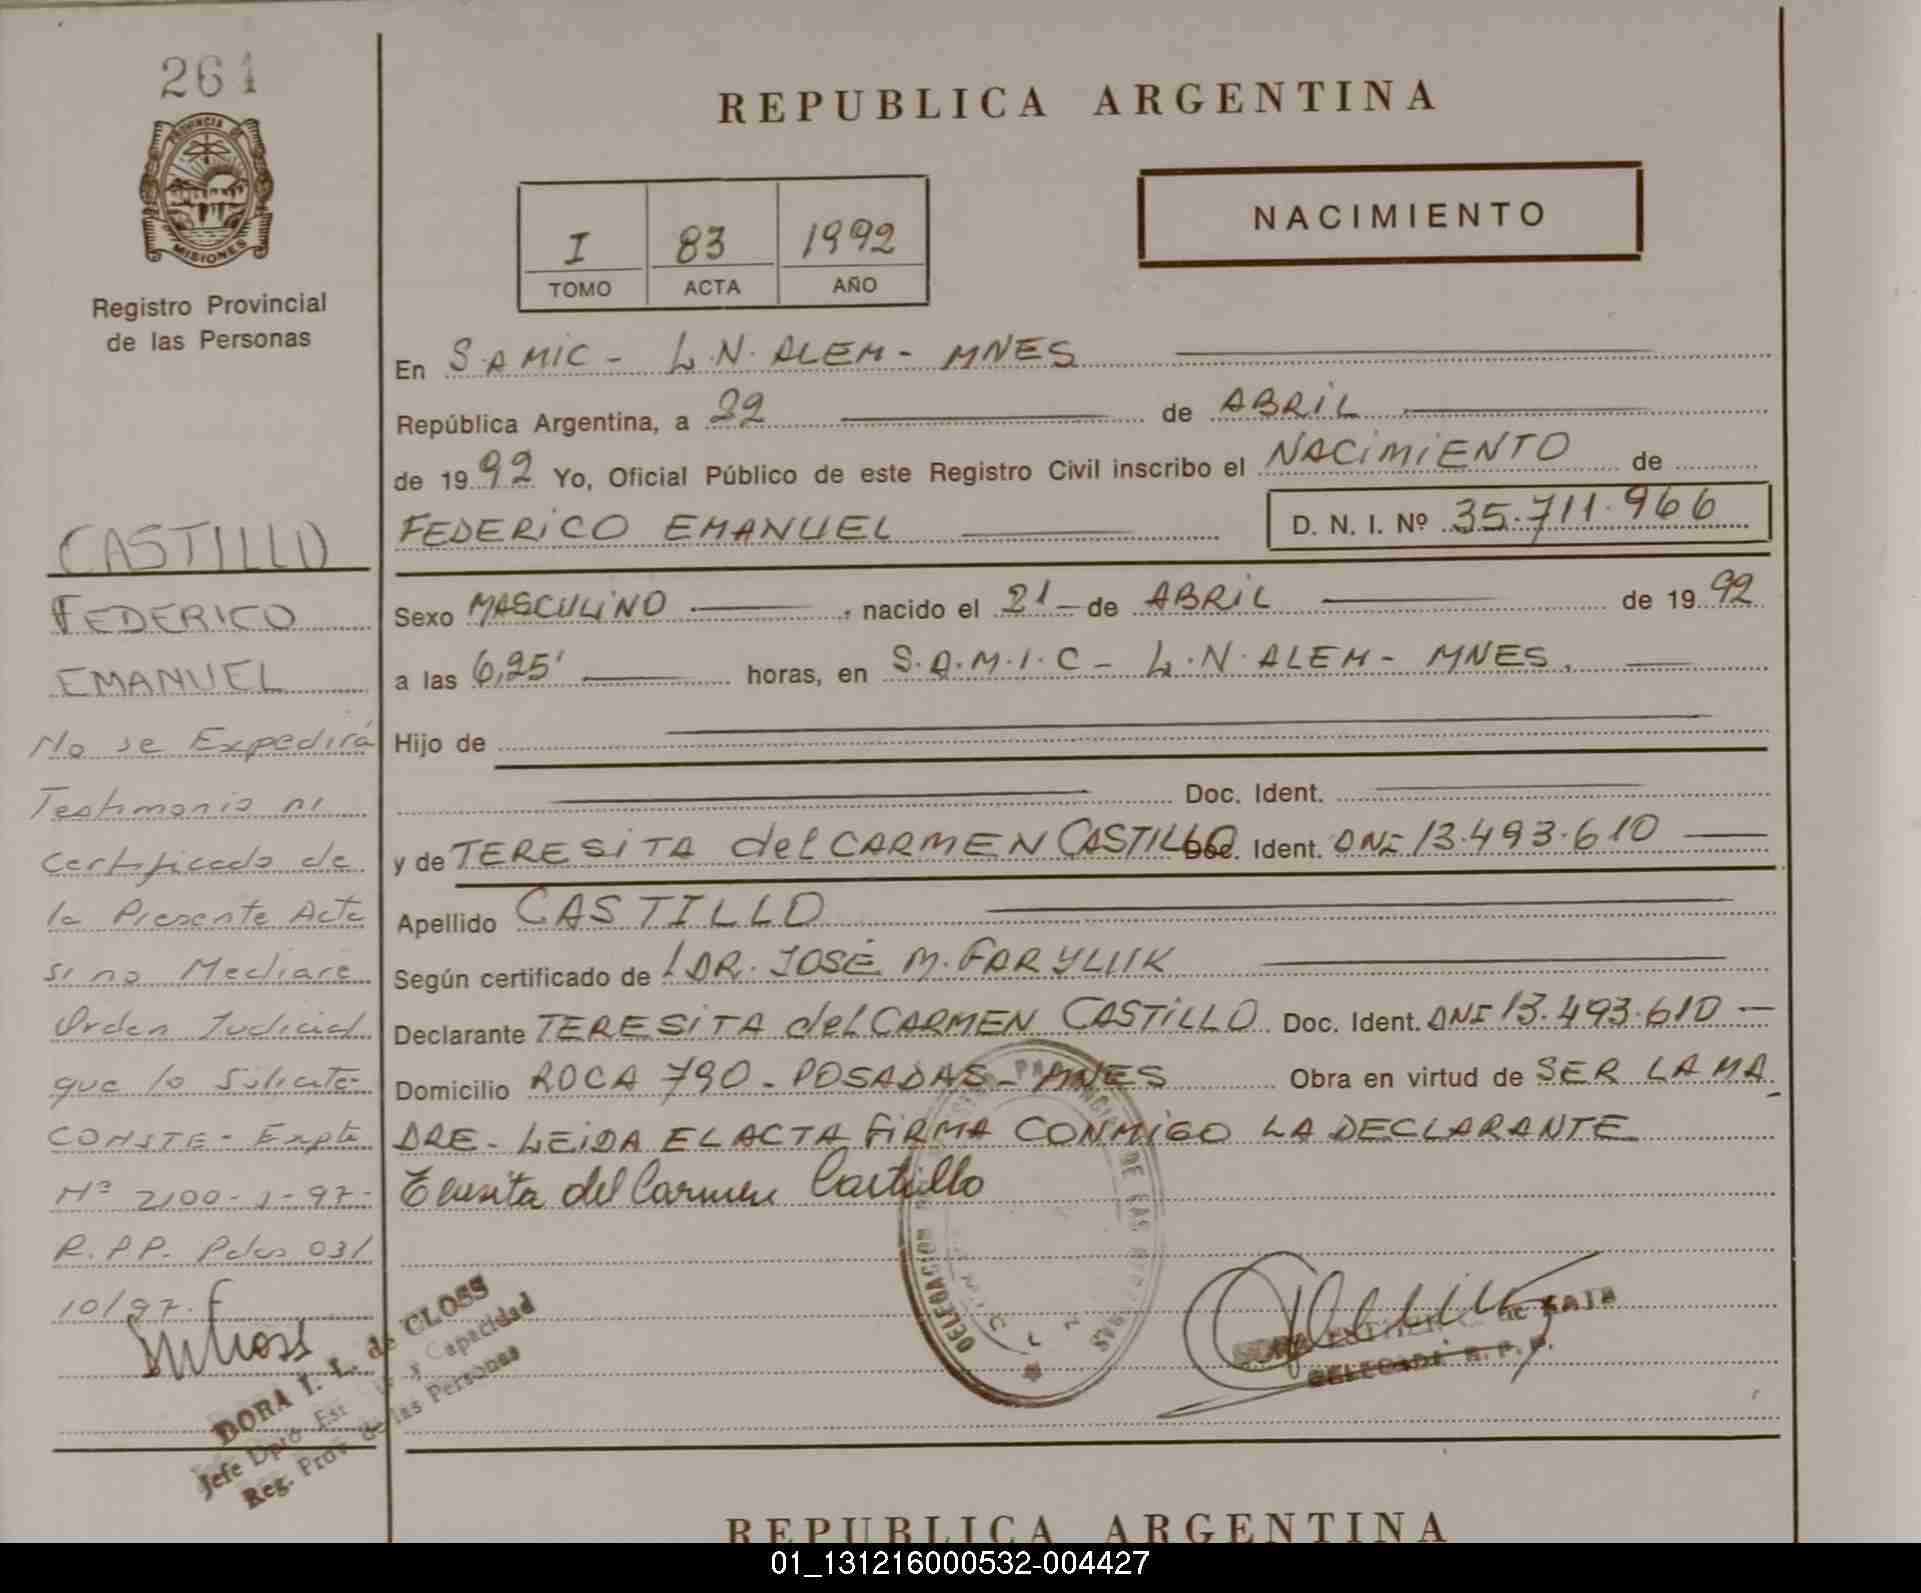 261
PROVINCIA DE
MISIONES
Registro Provincial
de las Personas
REPUBLICA ARGENTINA
I 83 1992
TOMO ACTA AÑO
NACIMIENTO
En S.AMIC - L.N.ALEM - MNES
República Argentina, a 22 de ABRIL
de 1992 Yo, Oficial Público de este Registro Civil inscribo el NACIMIENTO de
FEDERICO EMANUEL D. N. I. Nº 35.711.966
Sexo MASCULINO , nacido el 21 de ABRIL de 1992
a las 6,25' horas, en S.A.M.I.C - L.N.ALEM - MNES.
Hijo de
Doc. Ident.
y de TERESITA del CARMEN CASTILLO Doc. Ident. DNI 13.493.610
Apellido CASTILLO
Según certificado de DR. JOSÉ M.
Declarante TERESITA del CARMEN CASTILLO Doc. Ident. DNI 13.493.610
Domicilio ROCA 790 - POSADAS - MNES Obra en virtud de SER LA MA
DRE - LEIDA EL ACTA FIRMA CONMIGO LA DECLARANTE
Teresita del Carmen Castillo
CASTILLO
FEDERICO
EMANUEL
No se Expedirá
Testimonio ni
Certificado de
la Presente Acta
si no Mediare
Orden Judicial
que lo Solicite
CONSTE - Expte
Nº 2100-1-97-
R.P.P. Pdas 03/
10/97.
DORA T. L. de CLOSS
Jefe Dpto. Est y Capacidad
Reg. Prov. de las Personas
DELEGACION PROVINCIAL DE LAS
DELEGADA R. P. P.
REPUBLICA ARGENTINA
01_131216000532-004427